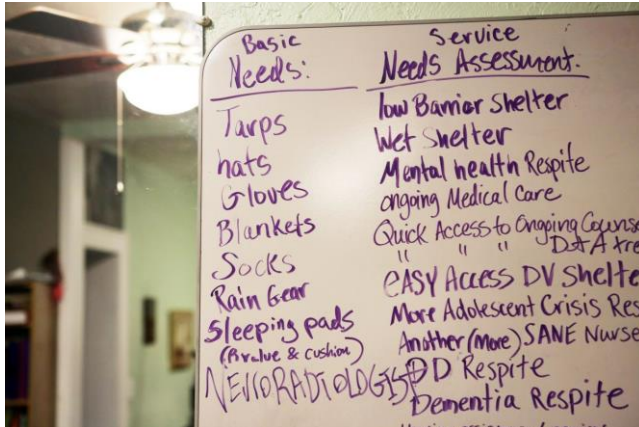 Basic
Needs:
Tarps
hats
Gloves
Blankets
Socks
Rain Gear
Sleeping pads
(R value & cushion)
NEUORADIOLOGIST
Service
Needs Assessment.
low Barrier Shelter
Wet Shelter
Mental health Respite
ongoing Medical Care
Quick Access to Ongoing Counse
" " " D&A tre
EASY Access DV Shelte
More Adolescent Crisis Res
Another (more) SANE Nurse
DD Respite
Dementia Respite